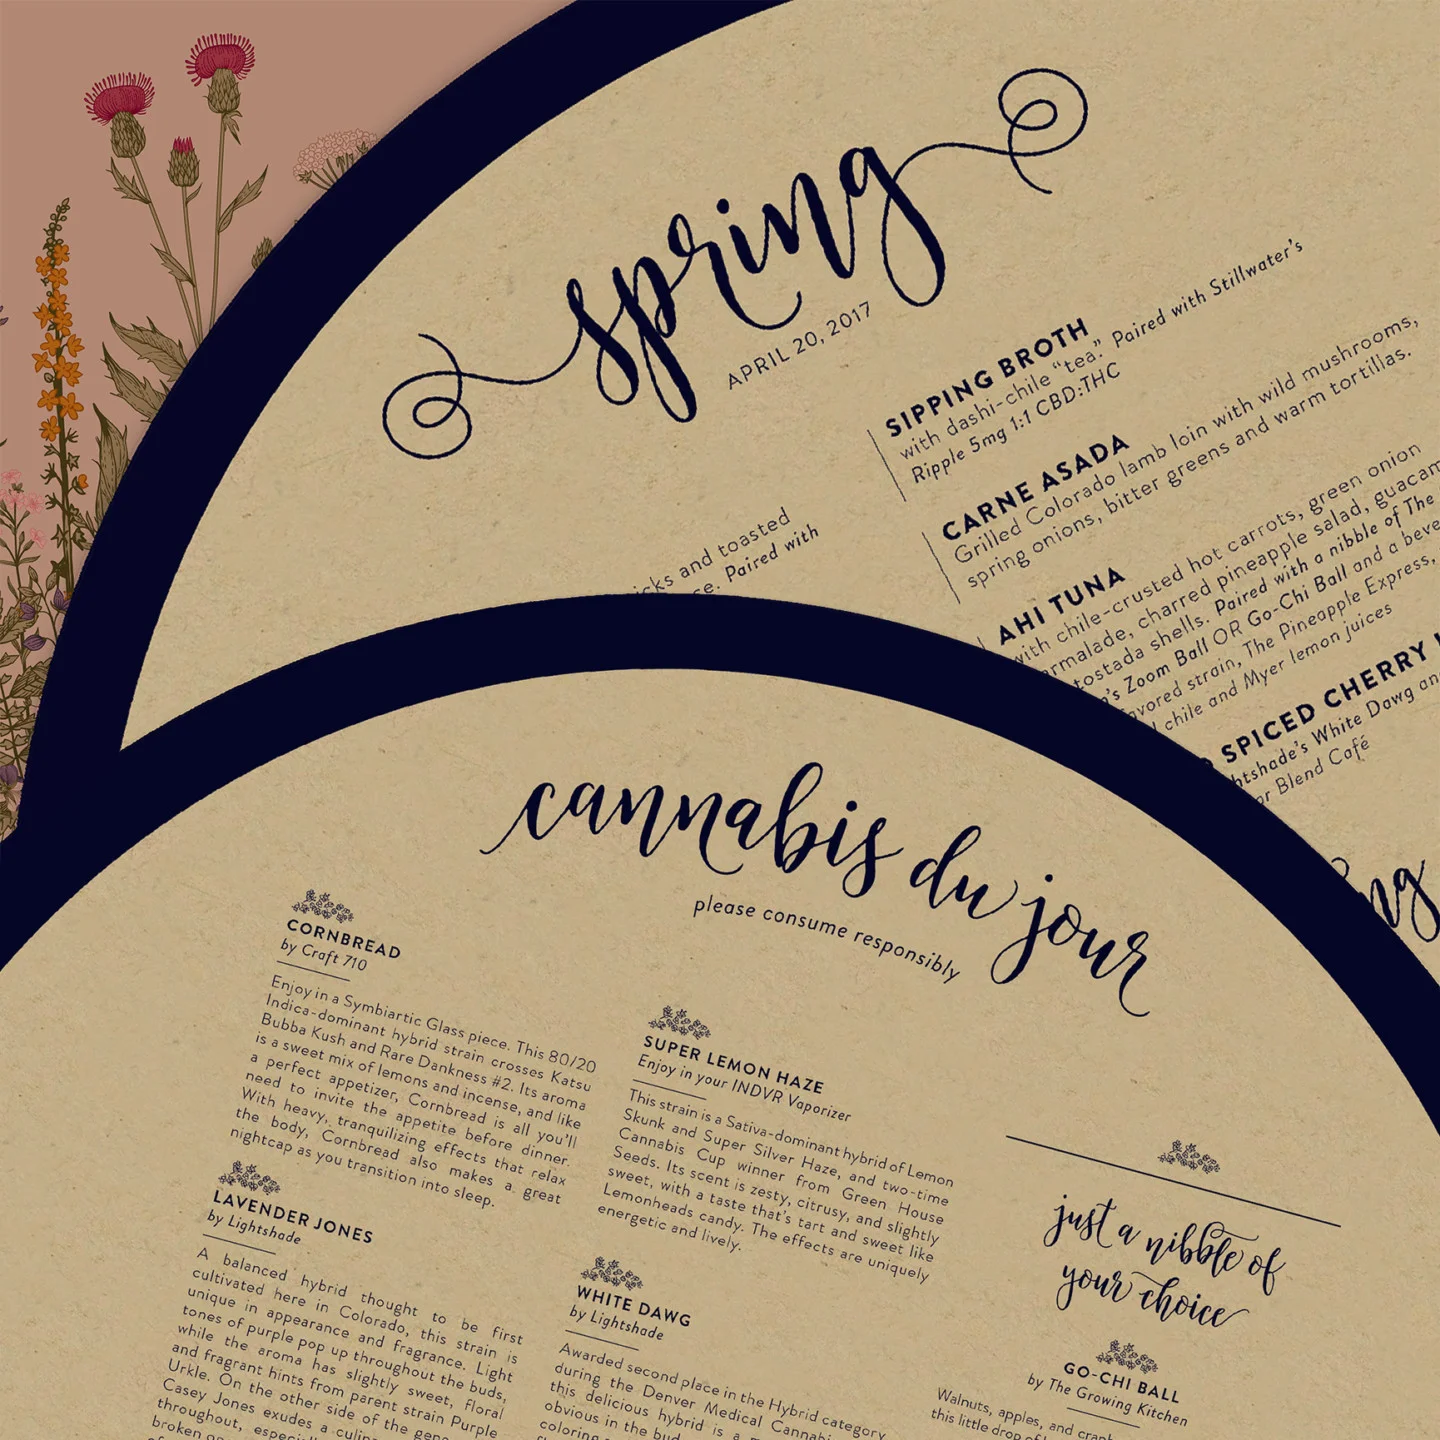 spring
APRIL 20, 2017
icks and toasted
ce. Paired with
SIPPING BROTH
with dashi-chile “tea.” Paired with Stillwater’s
Ripple 5mg 1:1 CBD:THC
CARNE ASADA
Grilled Colorado lamb loin with wild mushrooms,
spring onions, bitter greens and warm tortillas.
AHI TUNA
with chile-crusted hot carrots, green onion
ormalade, charred pineapple salad, guacam
tostada shells. Paired with a nibble of The
n’s Zoom Ball OR Go-Chi Ball and a beve
avored strain, The Pineapple Express,
l chile and Myer lemon juices
SPICED CHERRY
htshade’s White Dawg an
or Blend Café
ng
cannabis du jour
please consume responsibly
CORNBREAD
by Craft 710
Enjoy in a Symbiartic Glass piece. This 80/20
Indica-dominant hybrid strain crosses Katsu
Bubba Kush and Rare Dankness #2. Its aroma
is a sweet mix of lemons and incense, and like
a perfect appetizer, Cornbread is all you’ll
need to invite the appetite before dinner.
With heavy, tranquilizing effects that relax
the body, Cornbread also makes a great
nightcap as you transition into sleep.
LAVENDER JONES
by Lightshade
A balanced hybrid thought to be first
cultivated here in Colorado, this strain is
unique in appearance and fragrance. Light
tones of purple pop up throughout the buds,
while the aroma has slightly sweet, floral
and fragrant hints from parent strain Purple
Urkle. On the other side of the gene
Casey Jones exudes a culina
throughout, especiall
broken op
SUPER LEMON HAZE
Enjoy in your INDVR Vaporizer
This strain is a Sativa-dominant hybrid of Lemon
Skunk and Super Silver Haze, and two-time
Cannabis Cup winner from Green House
Seeds. Its scent is zesty, citrusy, and slightly
sweet, with a taste that’s tart and sweet like
Lemonheads candy. The effects are uniquely
energetic and lively.
WHITE DAWG
by Lightshade
Awarded second place in the Hybrid category
during the Denver Medical Cannabi
this delicious hybrid is a
obvious in the bud
coloring
just a nibble of
your choice
GO-CHI BALL
by The Growing Kitchen
Walnuts, apples, and cranb
this little drop of